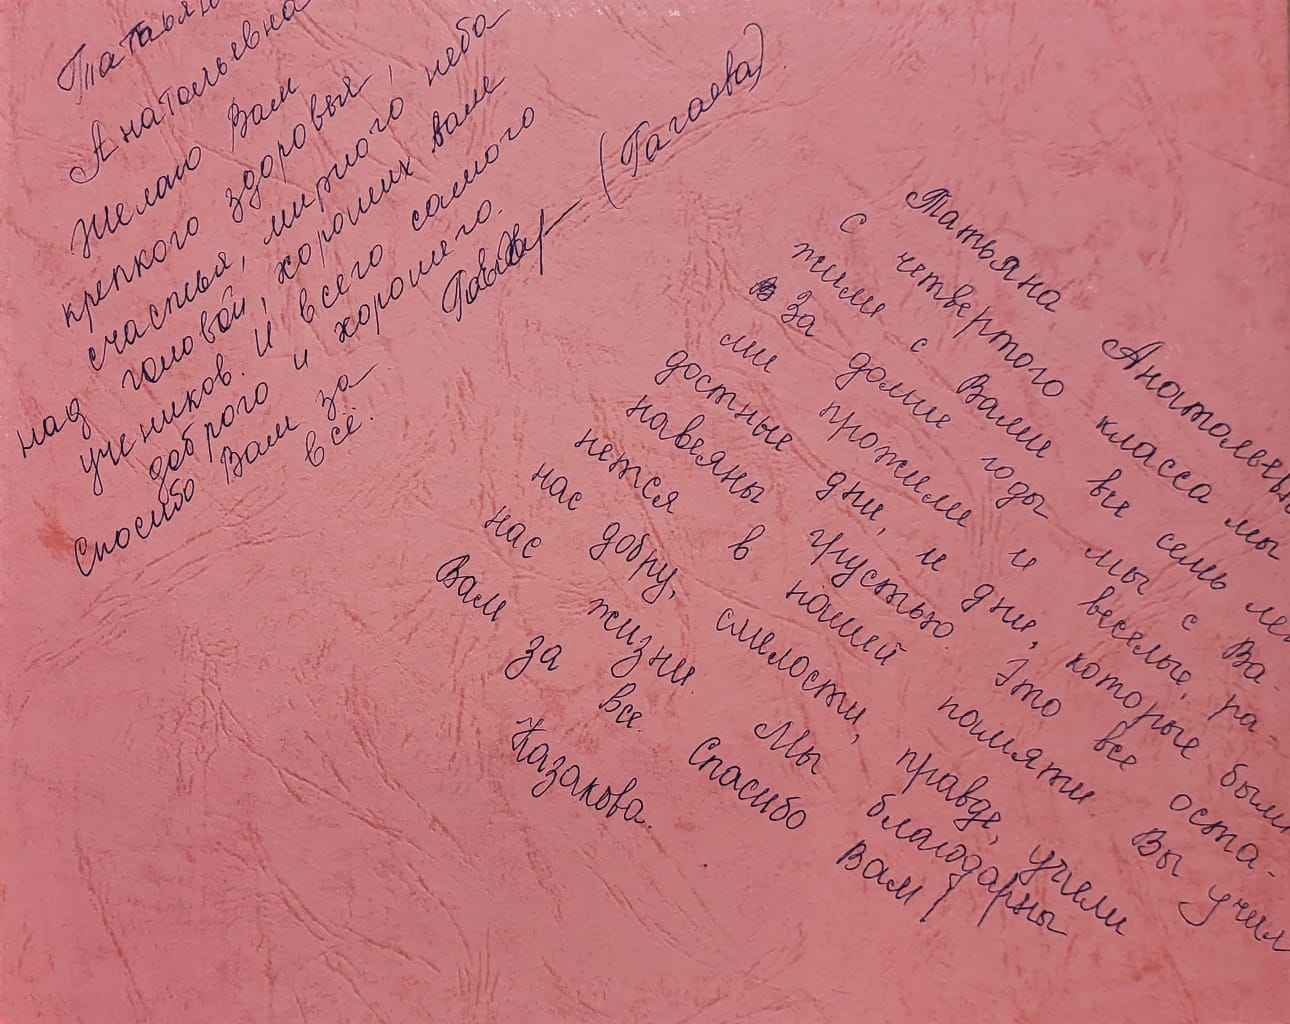 Татьяна
Анатольевна
Желаю Вам
крепкого здоровья,
счастья, мирного неба
над головой, хороших вам
учеников. И всего самого
доброго и хорошего.
Спосибо Вам за
всё.
(Гагаева)
Татьяна Анатольевна
С четвертого класса мы
жили с Вами все семь лет
За долгие годы мы с Ва-
ми прожили и веселые, ра-
достные дни, и дни, которые были
навеяны грустью. Это все оста-
нется в нашей памяти. Вы учили
нас добру, смелости, правде, учили
нас жизни. Мы благодарны
Вам за все. Спасибо Вам!
Казакова.